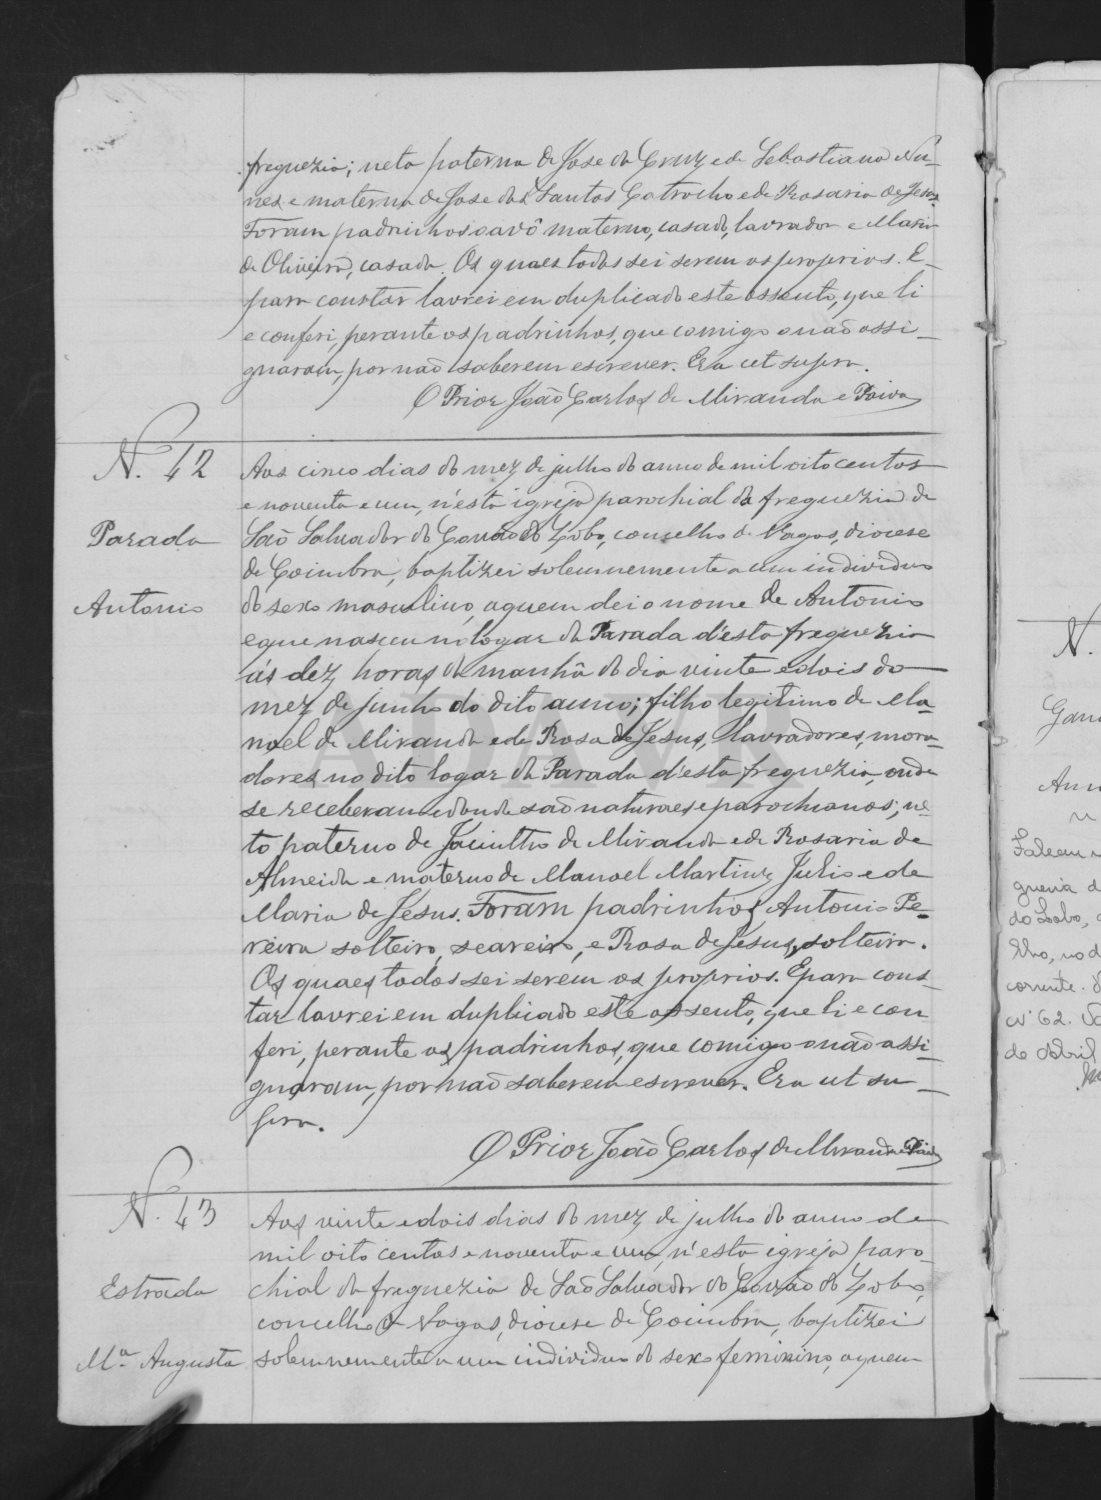 freguezia; neta paterna de Jose da Cruz e de Sebastiana Nu-
nes e materna de Jose dos Santos Catrocho e de Rosaria de Jesus.
Foram padrinhos o avô materno, casado, lavrador e Maria
de Oliveira, casada. Os quaes todos sei serem os proprios. E
para constar lavrei em duplicado este assento, que li
e conferi, perante os padrinhos, que comigo o não assi-
gnaram, por não saberem escrever. Era ut supra.
O Prior João Carlos de Miranda e Paiva
N. 42
Parada
Antonio
Aos cinco dias do mez de julho do anno de mil oito centos
e noventa e um, n'esta igreja parochial da freguezia de
São Salvador do Covão do Lobo, concelho de Vagos, diocese
de Coimbra, baptizei solemnemente a um individuo
do sexo masculino, a quem dei o nome de Antonio
e que nasceu no logar da Parada d'esta freguezia
ás dez horas da manhã do dia vinte e dois do
mez de junho do dito anno; filho legitimo de Ma-
noel de Miranda e de Rosa de Jesus, lavradores, mora-
dores no dito logar da Parada d'esta freguezia, onde
se receberam e donde são naturaes e parochianos; ne-
to paterno de Jacintho de Miranda e de Rosaria de
Almeida e materno de Manoel Martins Julio e de
Maria de Jesus. Foram padrinhos Antonio Pe-
reira solteiro, seareiro, e Rosa de Jesus, solteira.
Os quaes todos sei serem os proprios. E para cons-
tar lavrei em duplicado este assento, que li e con
feri, perante os padrinhos, que comigo o não assi-
gnaram, por não saberem escrever. Era ut su-
pra.
O Prior João Carlos de Miranda e Paiva
N. 43
Estrada
M.ª Augusta
Aos vinte e dois dias do mez de julho do anno de
mil oito centos e noventa e um, n'esta igreja paro-
chial da freguezia de São Salvador do Covão do Lobo,
concelho de Vagos, diocese de Coimbra, baptizei
solemnemente a um individuo do sexo feminino, a quem
N.
do Lobo,
corrente.
Nº 62.
de Abril
ADAVR